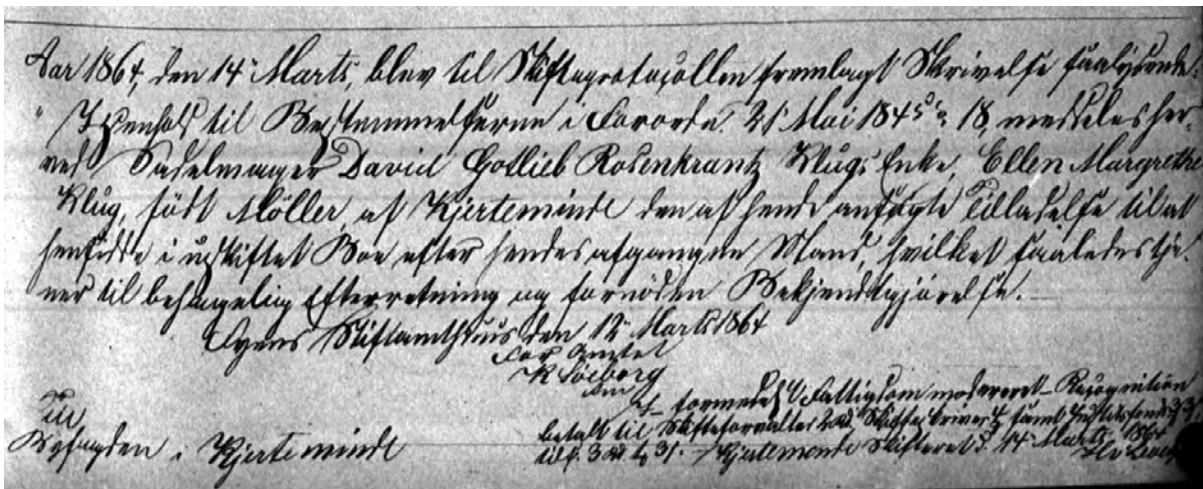 Aar 1864, den 14 Marts, blev til Skifteprotocollen fremlagt Skrivelse saalydende
"I Henhold til Bestemmelserne i Forordn. 21 Mai 1845 § 18, meddeles her-
ved Sadelmager David Gotlieb Rosenkrantz Klugs Enke, Ellen Margrethe
Klug, født Møller, af Kjerteminde den af hende ansøgte Tilladelse til at
hensidde i uskiftet Boe efter hendes afgangne Mand, hvilket saaledes tje-
ner til behagelig Efterretning og fornøden Bekjendtgjørelse.
Fyens Stiftamthuus den 12 Marts 1864
For Amtet
Til
Byfogden i Kjerteminde
formedelst Fattigdom modereret Recognition
betalt til Skifteforvalter
Kjerteminde Skifteret d. 14 Marts 1864